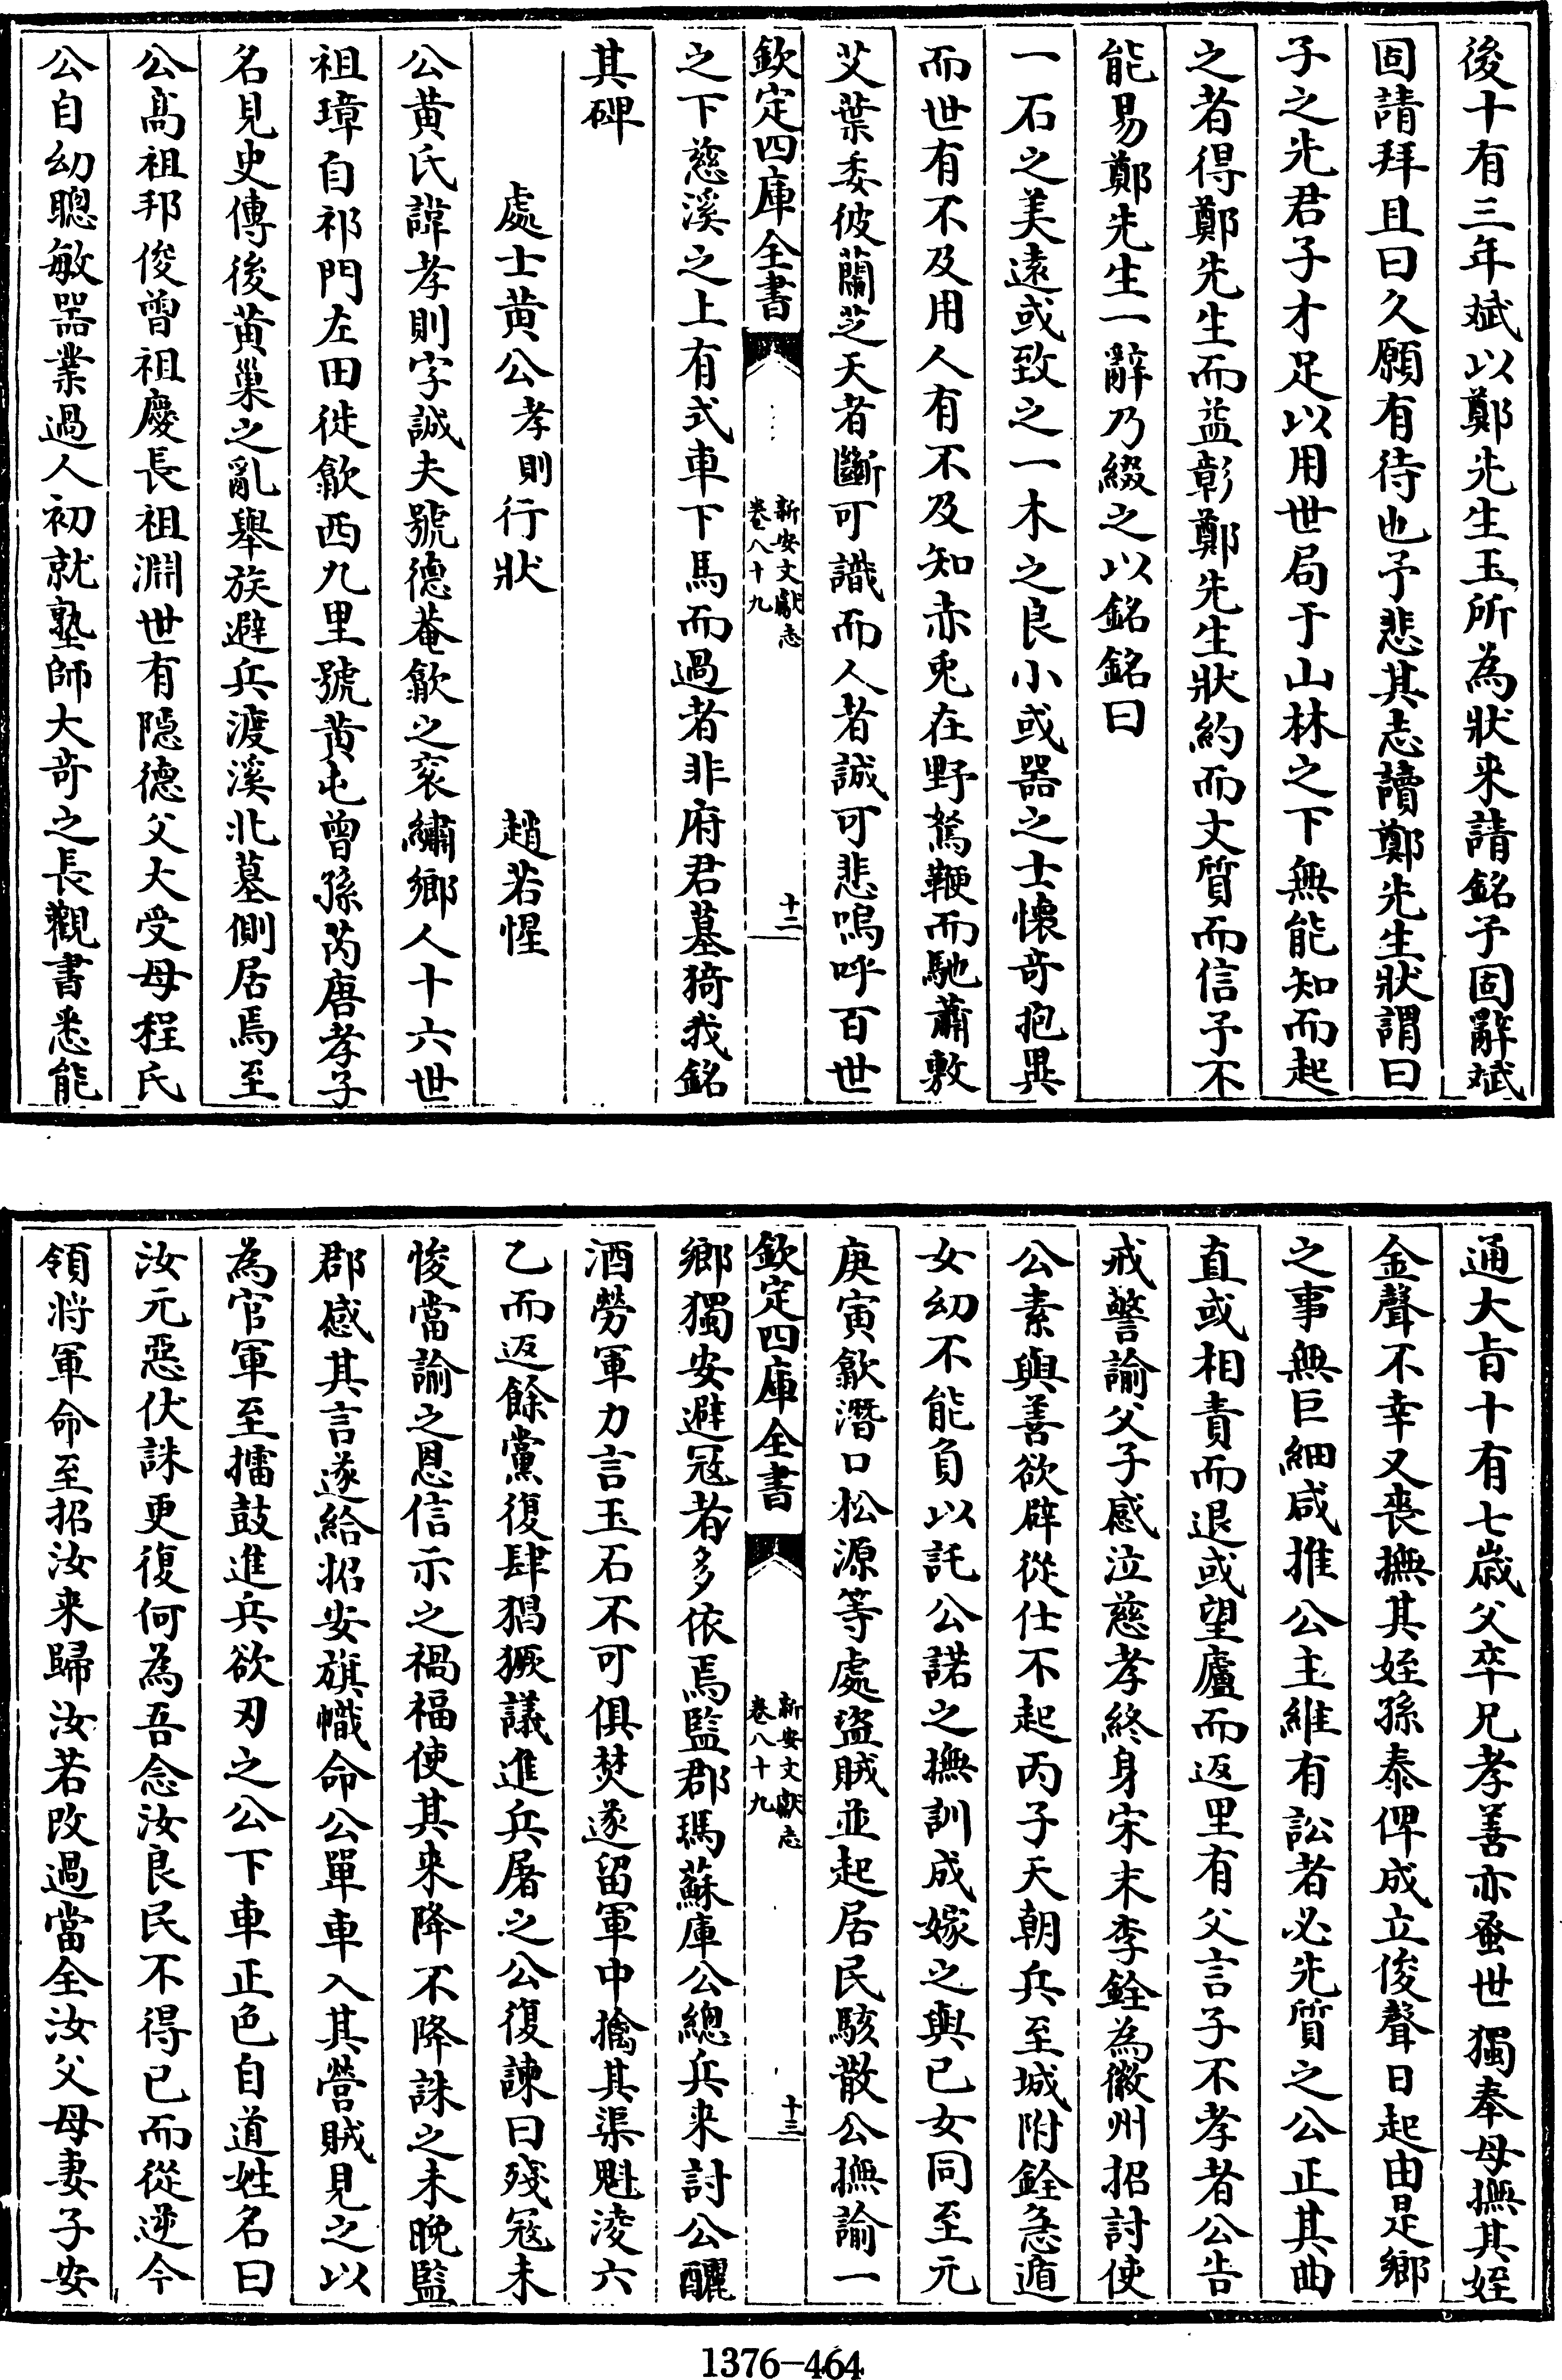 後十有三年斌以鄭先生玉所為狀来請銘予固辭斌
固請拜且曰久願有待也予悲其志讀鄭先生狀謂曰
子之先君子才足以用世局于山林之下無能知而起
之者得鄭先生而益彰鄭先生狀約而文質而信予不
能易鄭先生一辭乃綴之以銘銘曰
一石之美遠或致之一木之良小或器之士懐竒抱異
而世有不及用人有不及知赤兎在野駑鞭而馳蕭敷
艾葉委彼蘭芝天者斷可識而人者誠可悲嗚呼百世
欽定四庫全書
新安文獻志
卷八十九
十二
之下慈溪之上有式車下馬而過者非府君墓猗我銘
其碑
處士黄公孝則行狀 趙若惺
公黄氏諱孝則字誠夫號德菴歙之衮繡鄉人十六世
祖璋自祁門左田徙歙西九里號黄屯曾孫芮唐孝子
名見史傳後黄巢之亂舉族避兵渡溪北墓側居焉至
公髙祖邦俊曾祖慶長祖淵世有隠德父大受母程氏
公自幼聰敏器業過人初就塾師大竒之長觀書悉能
通大旨十有七歳父卒兄孝善亦蚤世獨奉母撫其姪
金聲不幸又喪撫其姪孫泰俾成立俊聲日起由是鄉
之事無巨細咸推公主維有訟者必先質之公正其曲
直或相責而退或望廬而返里有父言子不孝者公告
戒警諭父子感泣慈孝終身宋末李銓為徽州招討使
公素與善欲辟從仕不起丙子天朝兵至城附銓急遁
女幼不能負以託公諾之撫訓成嫁之與已女同至元
庚寅歙潛口松源等處盜賊並起居民駭散公撫諭一
欽定四庫全書
新安文獻志
卷八十九
十三
鄉獨安避冦者多依焉監郡瑪蘇庫公總兵来討公釃
酒勞軍力言玉石不可俱焚遂留軍中擒其渠魁淩六
乙而返餘黨復肆猖獗議進兵屠之公復諫曰殘冦未
悛當諭之恩信示之禍福使其来降不降誅之未晚監
郡感其言遂給招安旗幟命公單車入其營賊見之以
為官軍至擂鼓進兵欲刃之公下車正色自道姓名曰
汝元惡伏誅更復何為吾念汝良民不得已而從逆今
領將軍命至招汝来歸汝若改過當全汝父母妻子安
1376-464